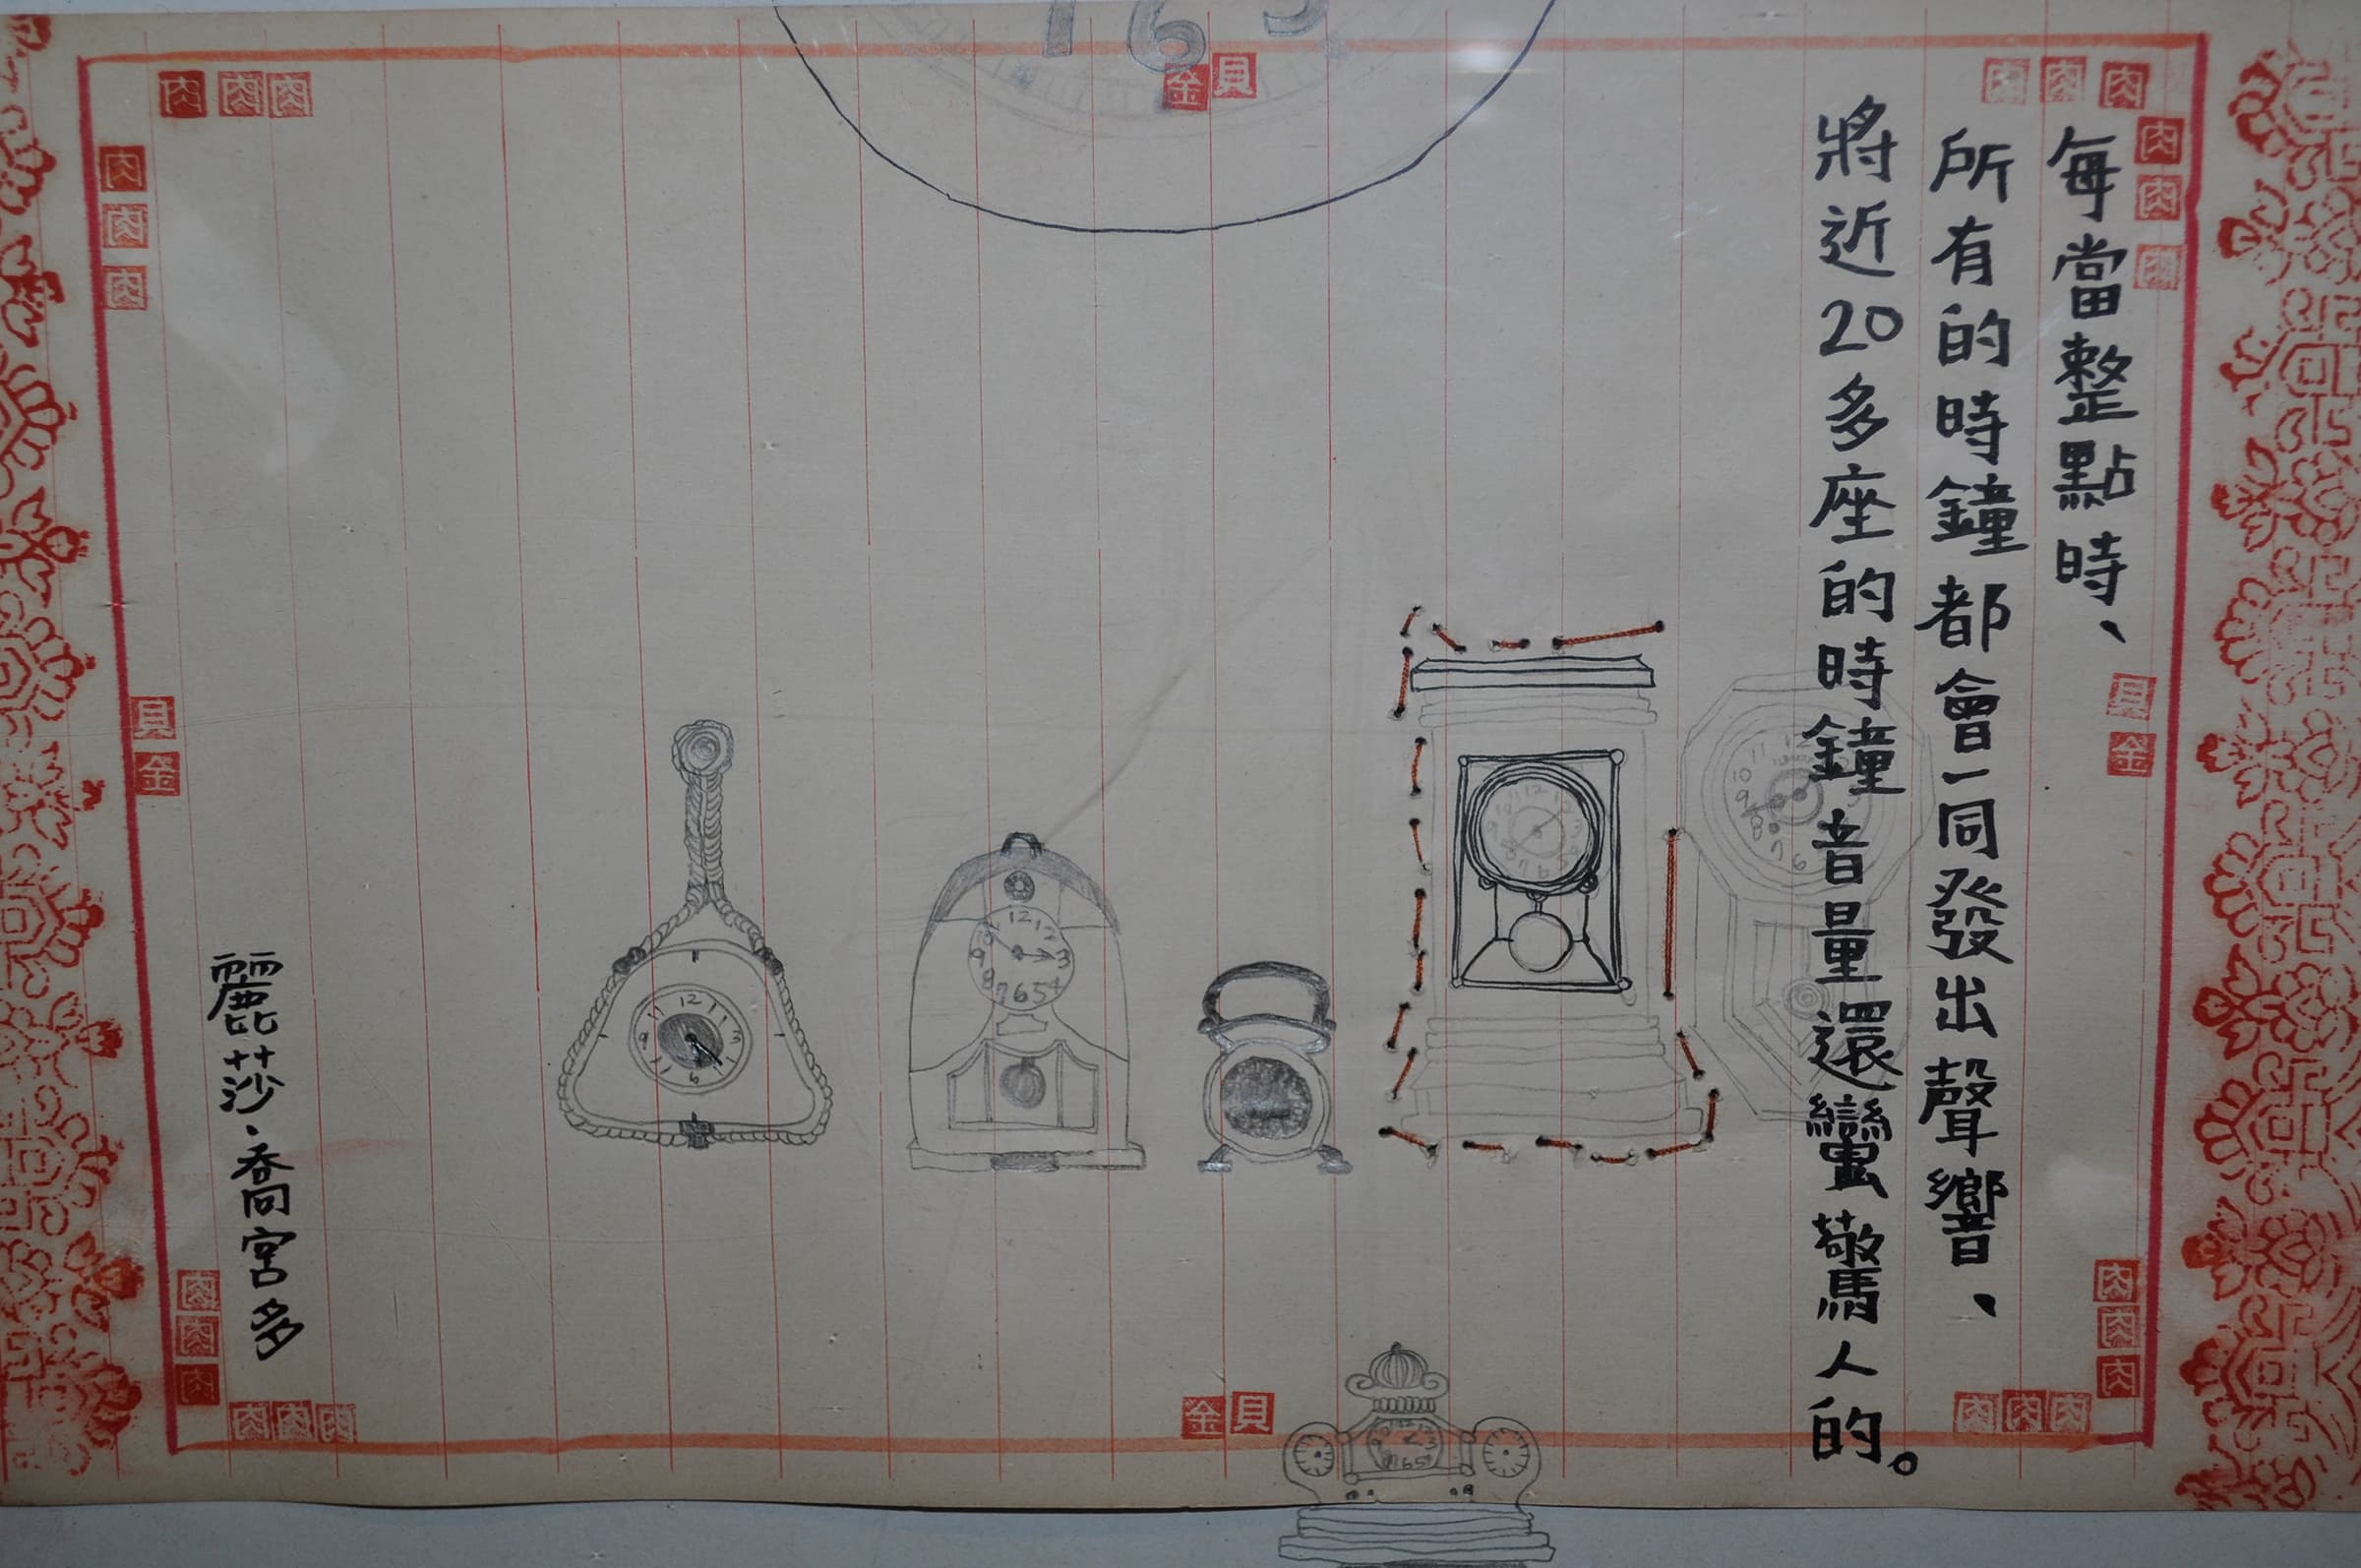 每當整點時、
所有的時鐘都會一同發出聲響、
將近20多座的時鐘音量還蠻驚人的。
麗莎·喬宮多
金貝
貝金
貝金
金貝